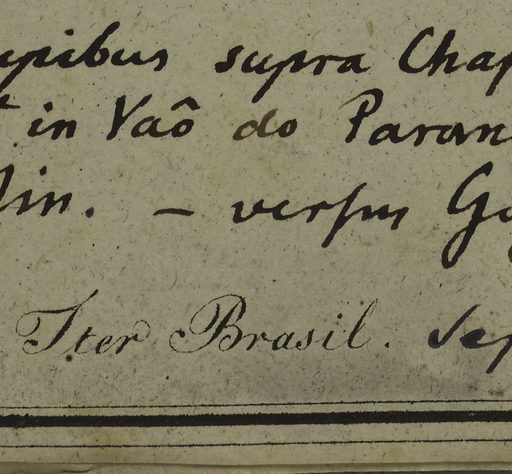 upibus supra Chap
in Vaô do Paran
Min. — versus Go
Iter Brasil. Sep